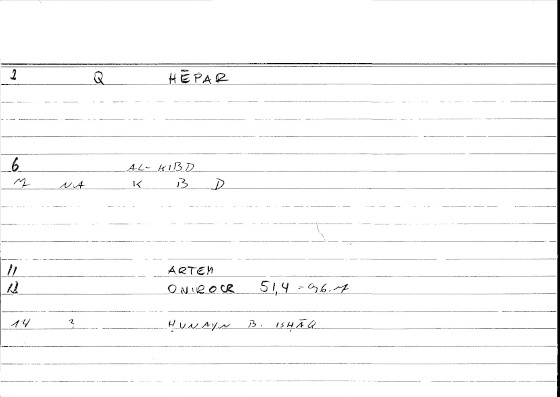 2 Q HĒPAR
6 AL-KIBD
M NA K B D
11 ARTEM
12 ONIROCR 51,4 - 96.7
14 3 ḤUNAYN B. ISḤĀQ